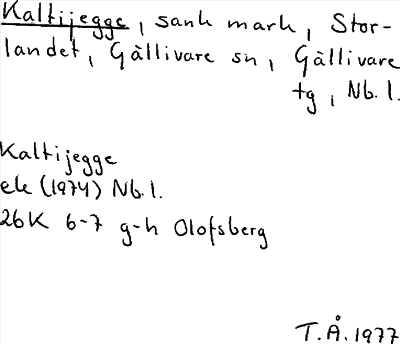 Kaltijegge, sank mark, Stor-
landet, Gällivare sn, Gällivare
tg, Nb.l.
Kaltijegge
ek (1974) Nb.l.
26K 6-7 g-h Olofsberg
T.Å.1977